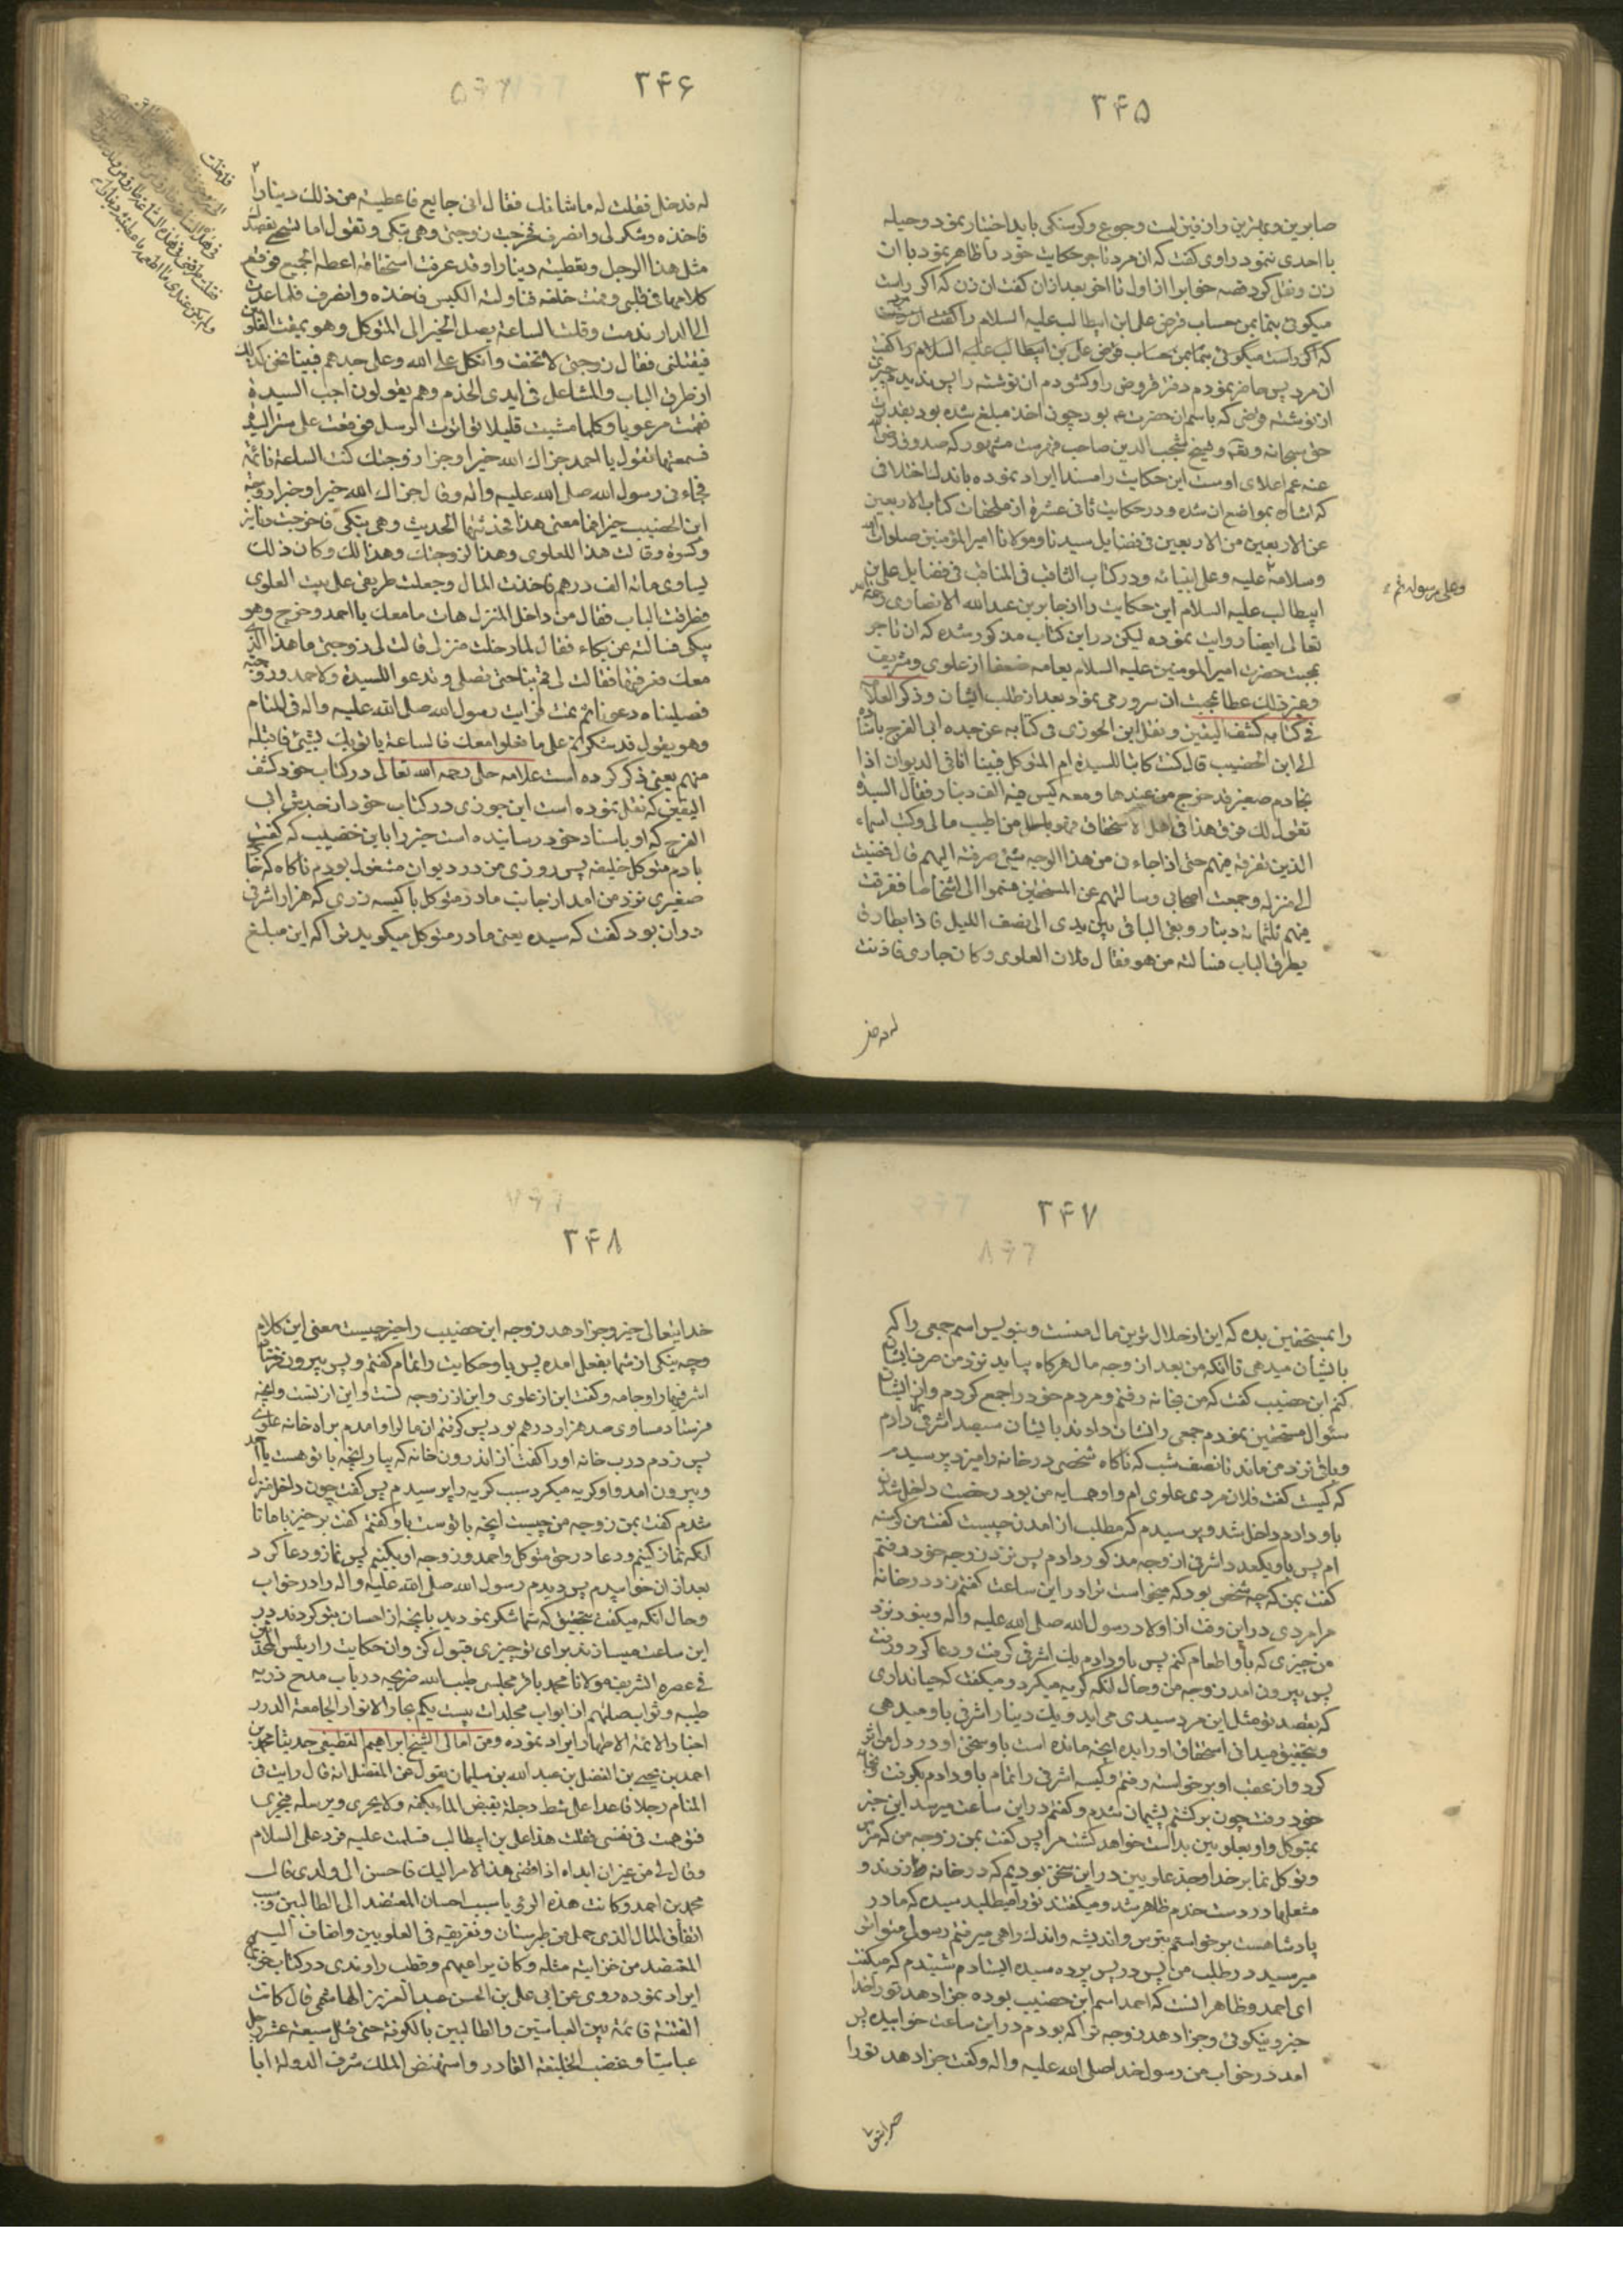 ۳۴۵
صابرین و بهترین وازقین است وجوع و کرسنکی باید اختیار نمود وحیله
با احدی ننمود راوی کفت که ان مرد تاجر حکایت خود را ظاهر نمود با ان
زن و نقل کرد قصه خوابرا از اول تا اخر بعد از ان کفت ان زن که اکر راست
میکوئی بنما بمن حساب قرض علی ابن ابیطالب علیه السلام را کفت ان مرد
که اکر راست میکوئی بنما بمن حساب قرض علی بن ابیطالب علیه السلام را کفت
ان مرد پس حاضر نمودم دفتر قروض را و کشودم ان نوشته را پس ندیدم چیزی
از نوشته قرض که باسم ان حضرت ع بود چون اخذ مبلغ شده بود بقدرت
حق سبحانه وتعالی و شیخ منتجب الدین صاحب فهرست مشهور که صدوق رضی الله
عنه عم اعلای اوست این حکایت را مسندا ایراد نموده باندک اختلافی
که اشاره بمواضع ان شده و در حکایت ثانی عشرة از ملحقات کتاب الاربعین
عن الاربعین من الاربعین فی فضایل سیدنا ومولانا امیر المؤمنین صلوات الله
وسلامه علیه وعلی ابنیائه و در کتاب الثاقب فی المناقب فی فضایل علی بن
وعلی رسوله ثم
ابیطالب علیه السلام این حکایت را از جابر بن عبد الله الانصاری رحمه الله
تعالی ایضا روایت نموده لیکن در این کتاب مذکور شده که ان تاجر
بمحبت حضرت امیر المومنین علیه السلام بعامه ضعفا از علوی وشریف
وغیر ذلک عطا بمحبت ان سرور می نمود بعد از طلب ایشان وذکر العلامه
فی کتابه کشف الیقین ونقل ابن الجوزی فی کتابه عن جده ابی الفرج باسناده
الی ابن الخضیب قال کنت کاتبا للسیدة ام المتوکل فبینا انا فی الدیوان اذا
بخادم صغیر قد خرج من عندها ومعه کیس فیه الف دینار فقال السیدة
تقول لک فرق هذا فی اهل الاستحقاق فهو من اطیب مالی وکتب اسماء
الذین تفرقه فیهم حتی اذا جاءنی من هذا الوجه شیئ صرفته الیهم قال فمضیت
الی منزلی وجمعت اصحابی وسالتهم عن المستحقین فسموا الی اشخاصا ففرقت
فیهم ثلثمائة دینار وبقی الباقی بین یدی الی نصف اللیل فاذا بطارق
یطرق الباب فسالته من هو فقال فلان العلوی وکان جاری فاذنت
له فدخل
۳۴۶
له فدخل فقلت له ما شانک فقال انی جایع فاعطیته من ذلک دینارا
فاخذه وشکر لی وانصرف فخرجت زوجتی وهی تبکی وتقول اما تستحی یقصدک
مثل هذا الرجل وتعطیته دینارا وقد عرفت استحقاقه اعطه الجمیع فوقع
کلامها فی قلبی وقمت خلفه فناولته الکیس فاخذه وانصرف فلما عدت
الی الدار ندمت وقلت الساعة یصل الخبر الی المتوکل وهو یمقت العلویین
فیقتلنی فقال زوجتی لا تخف واتکل علی الله وعلی جدهم فبینا نحن کذلک
اذ طرق الباب والمشاعل فی ایدی الخدم وهم یقولون اجب السیدة
فقمت مرعوبا وکلما مشیت قلیلا تواترت الرسل فوقفت علی ستر السیدة
فسمعتها تقول یا احمد جزاک الله خیرا وجزا زوجتک کنت الساعة نائمة
فجاءنی رسول الله صلی الله علیه واله وقال جزاک الله خیرا وجزا زوجة
ابن الخضیب خیرا فما معنی هذا فحدثتها الحدیث وهی تبکی فاخرجت دنانیر
وکسوة وقالت هذا للعلوی وهذا لزوجتک وهذا لک وکان ذلک
یساوی مائة الف درهم فاخذت المال وجعلت طریقی علی بیت العلوی
فطرقت الباب فقال من داخل المنزل هات ما معک یا احمد وخرج وهو
یبکی فسالته عن بکاء فقال لما دخلت منزلی قالت لی زوجتی ما هذا الذی
معک فعرفتها فقالت لی قم بنا حتی نصلی وندعو للسیدة ولاحمد وزوجته
فصلینا ودعونا ثم نمت فرایت رسول الله صلی الله علیه واله فی المنام
وهو یقول قد شکرتم علی ما فعلوا معک فالساعة یاتونک بشیئ فاقبله
منهم یعنی ذکر کرده است علامه حلی رحمه الله تعالی در کتاب خود کشف
الیقین که نقل نموده است ابن جوزی در کتاب خود از جدش ابی
الفرج که او باسناد خود رسانیده است خبر را بابن خضیب که کفت
بادم متوکل خلیفه پس روزی من در دیوان مشغول بودم ناکاه که خادم
صغیری نزد من امد از جانب مادر متوکل با کیسه زری که هزار اشرفی
دران بود کفت که سیده یعنی مادر متوکل میکوید ترا که این مبلغ
۳۴۷
را بمستحقین بده که این از حلال ترین مال منست وبنویس اسم جمعی را که
بایشان میدهی تا انکه من بعد از وجه مال هرکاه بیاید نزد من صرف ایشان
کنم ابن خضیب کفت که من بخانه رفتم ومردم خود را جمع کردم واز ایشان
سئوال مستحقین نمودم جمعی را نشان دادند بایشان سیصد اشرفی دادم
وباقی نزد من ماند تا نصف شب که ناکاه شخصی در خانه را میزد پرسیدم
که کیست کفت فلان مردی علوی ام واو همسایه من بود رخصت داخل شدن
باو دادم داخل شد و پرسیدم که مطلب از امدن چیست کفت من کرسنه
ام پس باو یکعدد اشرفی از وجه مذکور دادم پس نزد زوجه خود رفتم
کفت بمن که چه شخص بود که میخواست ترا در این ساعت کفتم زد در خانه
مرا مردی در این وقت از اولاد رسول الله صلی الله علیه واله ونبود نزد
من چیزی که باو اطعام کنم پس باو دادم یک اشرفی کرفت ودعا کرد ورفت
پس بیرون امد زوجه من وحال انکه کریه میکرد ومیکفت که حیا نداری
که بقصد تو مثل این مرد سیدی می اید ویک دینار اشرفی باو میدهی
وبتحقیق میدانی استحقاق او را بده انچه مانده است باو سخن او در دل من اثر
کرد واز عقب او برخواسته رفتم وکیسه اشرفی را تمام باو دادم بکرفت وبخانه
خود رفت چون برکشتم پشیمان شدم وکفتم در این ساعت میرسد این خبر
بمتوکل واو بعلویین بد است خواهد کشت مرا پس کفت بمن زوجه من که مترس
وتوکل نما بر خدا وجد علویین در این سخن بودیم که در خانه زدند و
مشعلها در دست خدم ظاهر شد ومیکفتند تو را میطلبد سیده که مادر
پادشاهست برخواستم بترس واندیشه واندک راهی میرفتم رسول متواتر
میرسید در طلب من پس در پس پرده سیده ایستادم شنیدم که میکفت
ای احمد وظاهر انست که احمد اسم ابن خضیب بوده جزا دهد تو را خدا
خیر ونیکوئی وجزا دهد زوجه ترا که بودم در این ساعت خوابیده پس
امد در خواب من رسول خدا صلی الله علیه واله وکفت جزا دهد تو را
۳۴۸
خدایتعالی خیر وجزا دهد زوجه ابن خضیب را خیر چیست معنی این کلام
وچه نیکی از شما بفعل امده پس باو حکایت را تمام کفتم وپس بیرون
اشرفیها را وجامه وکفت این از علوی واین از زوجه تست واین از تست وانچه
فرستاد مساوی صد هزار درهم بود پس کرفتم ان مال را وامدم براه خانه علوی
پس زدم درب خانه او را کفت از اندرون خانه که بیار انچه با تو هست یا احمد
وبیرون امد واو کریه میکرد سبب کریه را پرسیدم پس کفت چون داخل منزل
شدم کفت بمن زوجه من چیست انچه با توست باو کفتم کفت برخیز با ما تا
انکه نماز کنیم ودعا در حق متوکل واحمد وزوجه او بکنیم پس نماز ودعا کرد
بعد از ان خوابیدم پس دیدم رسول الله صلی الله علیه واله را در خواب
وحال انکه میکفت بتحقیق که شما شکر نمودید بانچه از احسان بتو کردند در
این ساعت میسازند برای تو چیزی قبول کن وان حکایت را رئیس المحدثین
فی عصره الشریف مولانا محمد باقر مجلسی طیب الله ضریحه در باب مدح ذریه
طیبه وثواب صلتهم از ابواب مجلدات بیست یکم بحار الانوار الجامعة الدرر
اخبار الائمة الاطهار ایراد نموده ومن امالی الشیخ ابراهیم القطیفی حدیثا محمد بن
احمد بن یحیی بن الفضل بن عبد الله بن سلمان یقول عن المفضل انه قال رایت فی
المنام رجلا قاعدا علی شط دجلة یقبض الماء بکفه ولا یجری ویرسله فیجری
فتوهمت فی نفسی فقلت هذا علی بن ابیطالب فسلمت علیه فرد علی السلام
وقال لی من غیر ان ابداه اذا افضی هذا الامر الیک فاحسن الی ولدی قال
محمد بن احمد وکانت هذه الرؤیا سبب احسان المعتضد الی الطالبیین
انفاق المال الذی حمل من طبرستان وتفریقه فی العلویین واضاف الیه
المعتضد من خزانته مثله وکان یراعیهم وقطب راوندی در کتاب خرایج
ایراد نموده روی عن ابی علی بن الحسن عبد العزیز الهاشمی قال کانت
الفتنة قائمة بین العباسیین والطالبیین بالکوفة حتی قتل سبعة عشر رجل
عباسیا وغضب الخلیفة القادر واستنهض الملک شرف الدولة ابا